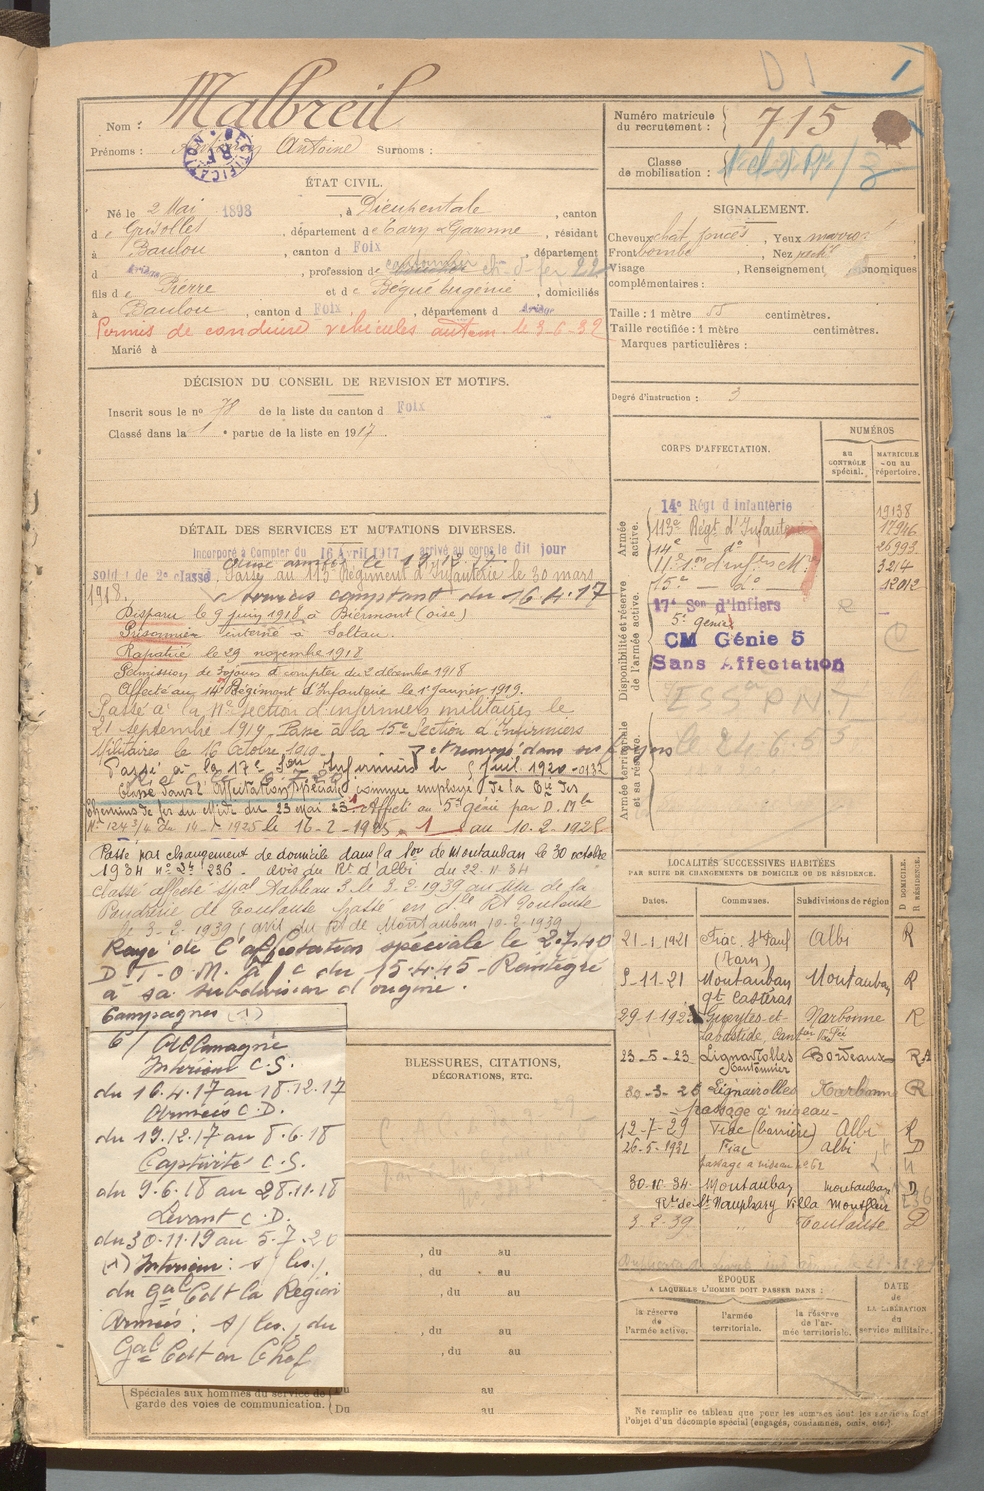 D I 1
Nom : Malbreil
Prénoms : Antoine Surnoms :
RECTIFICATION
R F
ÉTAT CIVIL.
Né le 2 Mai 1898, à Dieupentale, canton
de Grisolles, département de Tarn & Garonne, résidant
à Baulou, canton d Foix, département
d Ariège, profession de cantonnier ch. d. fer 22
fils de Pierre et de Bégué Eugénie, domiciliés
à Baulou, canton d Foix, département d Ariège
Permis de conduire véhicules autom. le 3-6-32
Marié à
DÉCISION DU CONSEIL DE REVISION ET MOTIFS.
Inscrit sous le n° 78 de la liste du canton d Foix
Classé dans la 1e partie de la liste en 1917.
DÉTAIL DES SERVICES ET MUTATIONS DIVERSES.
Incorporé à Compter du 16 Avril 1917 arrivé au corps le dit jour
aux armées le 19.12.17
soldat de 2e classe, Passé au 113 Régiment d'Infanterie le 30 mars
1918. services comptant du 16.4.17
Disparu le 9 juin 1918 à Biermont (oise)
Prisonnier interné à Soltau.
Rapatrié le 29 novembre 1918
Permission de 30 jours à compter du 2 décembre 1918
Affecté au 14e Régiment d'Infanterie le 1er Janvier 1919.
Passé à la 11e section d'infirmiers militaires le
21 septembre 1919. Passé à la 15e Section d'Infirmiers
Militaires le 16 Octobre 1919. et renvoyé dans ses foyers
Passé à la 17e Son Infirmiers le 5 Juil. 1920
Classé dans l'affectation spéciale comme employé de la Cie des
Chemins de fer du Midi du 23 mai 23. Affecté au 5e génie par D. Mle
N° 124 3/4 du 14-1-1925 le 16-2-1925. 1 au 10.2-1928
Passé par changement de domicile dans la Son de Montauban le 30 octobre
1934 n° 236 - avis du Rt d'Albi du 22.11.34
classé affecté spal Tableau 3 le 2-2-1939 au titre de la
Poudrerie de Toulouse passé en dle Rt Toulouse
le 3-2-1939 (avis du Rt de Montauban 10-2-1939)
Rayé de l'affectation spéciale le 2.7.40
D.T.O.M. à/c du 15.4.45 - Réintégré
à sa subdivision d'origine.
Campagnes (1)
C/ Allemagne
Intérieur C.S.
du 16.4.17 au 18.12.17
Armées C.D.
du 19.12.17 au 8.6.18
Captivité C.S.
du 9.6.18 au 28.11.18
Levant C.D.
du 30.11.19 au 5.7.20
(1) Intérieur : s/ les.
du Gal Cdt la Région
Armées : s/ les. du
Gal Cdt en Chef
BLESSURES, CITATIONS,
DÉCORATIONS, ETC.
, du au
, du au
, du au
, du au
, du au
Spéciales aux hommes du service de garde des voies de communication.
Du au
(Du au
Numéro matricule du recrutement : 715
Classe de mobilisation :
SIGNALEMENT.
Cheveux chat. foncés, Yeux marrons
Front bombé, Nez
Visage , Renseignements physionomiques
complémentaires :
Taille : 1 mètre 55 centimètres.
Taille rectifiée : 1 mètre centimètres.
Marques particulières :
Degré d'instruction : 3
CORPS D'AFFECTATION.
NUMÉROS
au CONTRÔLE spécial.
MATRICULE ou au répertoire.
Armée active.
14e Régt d'infanterie 19138
113e Régt d'Infanterie 17946
14e — d° 26993
11e Son d'infres Mres 3214
15e — d° 12012
Disponibilité et réserve de l'armée active.
17e Son d'Infiers
5e génie
CM Génie 5
Sans Affectation
ESSon P.N.T
le 24.6.55
Armée territoriale et sa réserve.
LOCALITÉS SUCCESSIVES HABITÉES
PAR SUITE DE CHANGEMENTS DE DOMICILE OU DE RÉSIDENCE.
Dates. Communes. Subdivisions de région D DOMICILE. R RÉSIDENCE.
21-1-1921 Fiac, St Paul (Tarn) Albi R
9-11-21 Montauban qt Castéras Montauban R
29-1-1923 Gueytes-et-Labastide, Narbonne R
23-5-23 Lignairolles Cantonnier Bordeaux R
30-3-26 Lignairolles Narbonne R
passage à niveau
12-7-29 Fiac (barrière) Albi R
26-5-1931 Fiac albi D
passage à niveau n° 62
30-10-34. Montauban montauban D
Rte de St Nauphary Villa Montflair
3-2-39 " Toulouse D
ÉPOQUE
A LAQUELLE L'HOMME DOIT PASSER DANS :
la réserve de l'armée active.
l'armée territoriale.
la réserve de l'armée territoriale.
DATE de LA LIBÉRATION du service militaire.
Ne remplir ce tableau que pour les hommes dont les services font
l'objet d'un décompte spécial (engagés, condamnés, omis, etc.).